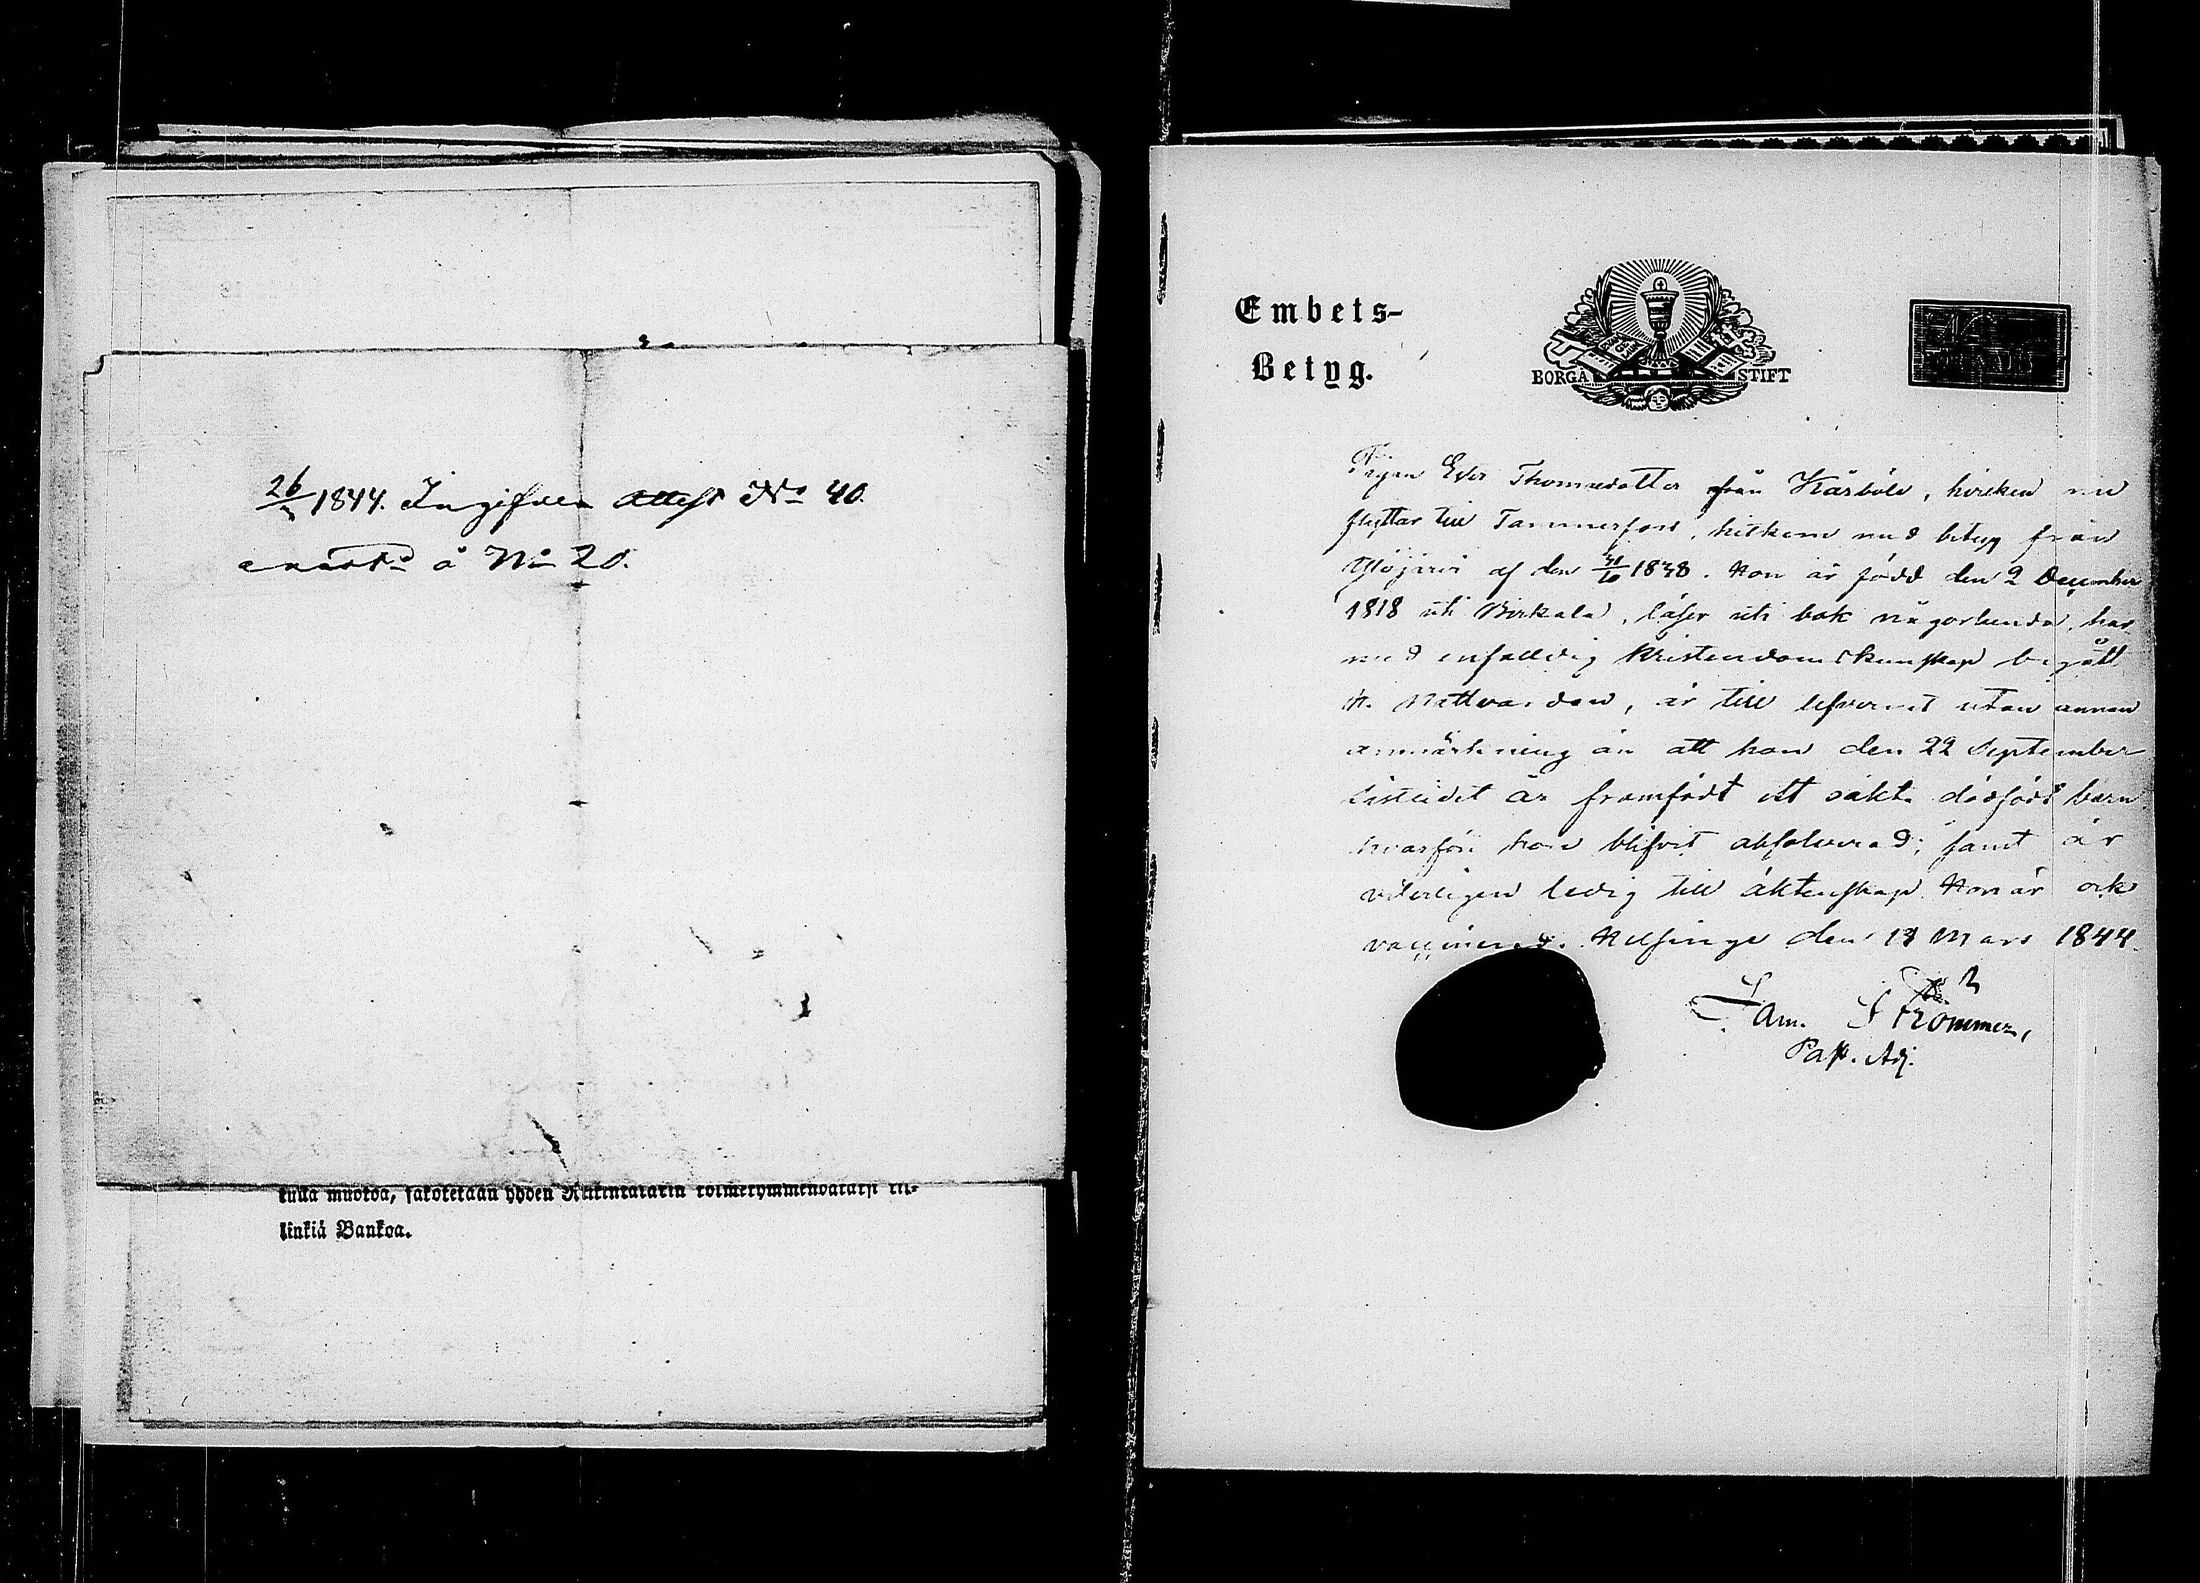 26/5 1844. Ingifven Attest No 40.
å No 20.
kulla muotoa, sakotetaan yhden Ruunlatatin kolmekymmendätäisi kil-
linkiä Bankoa.
Embets-
Betyg.
BORGÅ STIFT
Pigan Eva Thomasdotter från Kårböle, hvilken nu
flyttar till Tammerfors, hitkom med betyg från
Ylöjärvi af den 31/10 1838. Hon är född den 2 December
1818 uti Birkala, läser uti bok någorlunda, har
med enfaldig kristendomskunskap begått
H. Nattvarden, är till lefvernet utan annan
anmärkning än att hon den 22 September
sistledit år framfödt ett oäkta dödfödt barn
hvarför hon blifvit absolverad; samt är
veterligen ledig till äktenskap. Hon är ock
vaccinerad. Helsinge den 14 Mars 1844.
Sam. Strömmer,
Past. Adj.